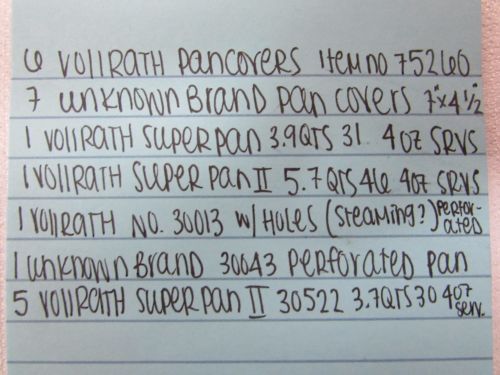 6 VOLLRATH PANCOVERS ITEM NO 75260
7 UNKNOWN BRAND PAN COVERS 7"X4 1/2"
1 VOLLRATH SUPER PAN 3.9QTS 31 4OZ SRVS
1 VOLLRATH SUPER PAN II 5.7QTS 46 4OZ SRVS
1 VOLLRATH NO. 30013 W/HOLES (STEAMING?) PERFORATED
1 UNKNOWN BRAND 30043 PERFORATED PAN
5 VOLLRATH SUPER PAN II 30522 3.7QTS 30 4OZ SERV.